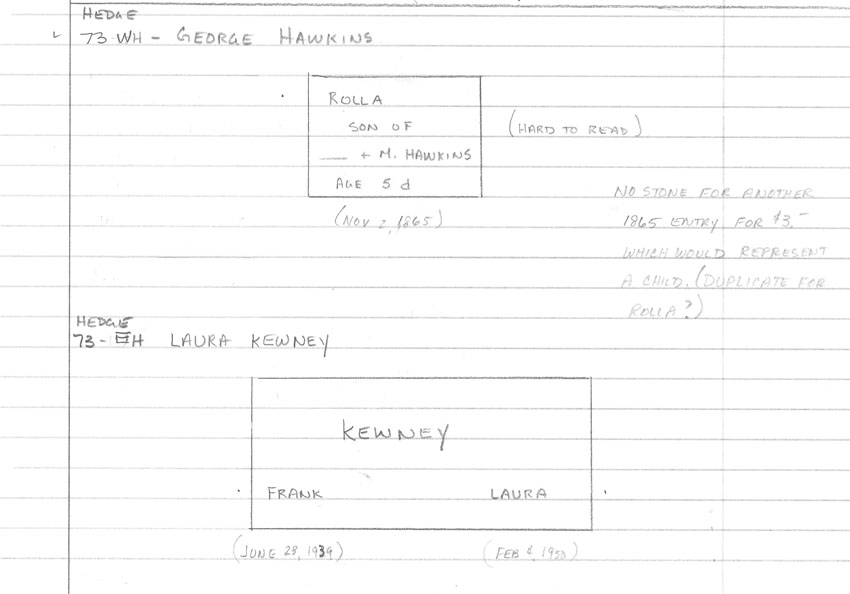 HEDGE
73 WH - GEORGE HAWKINS
ROLLA
SON OF
___ + M. HAWKINS
AGE 5 d
(HARD TO READ)
(NOV 2, 1865)
NO STONE FOR ANOTHER
1865 ENTRY FOR $3.-
WHICH WOULD REPRESENT
A CHILD. (DUPLICATE FOR
ROLLA?)
HEDGE
73 - EH LAURA KEWNEY
KEWNEY
FRANK LAURA
(JUNE 28, 1939) (FEB 1950)